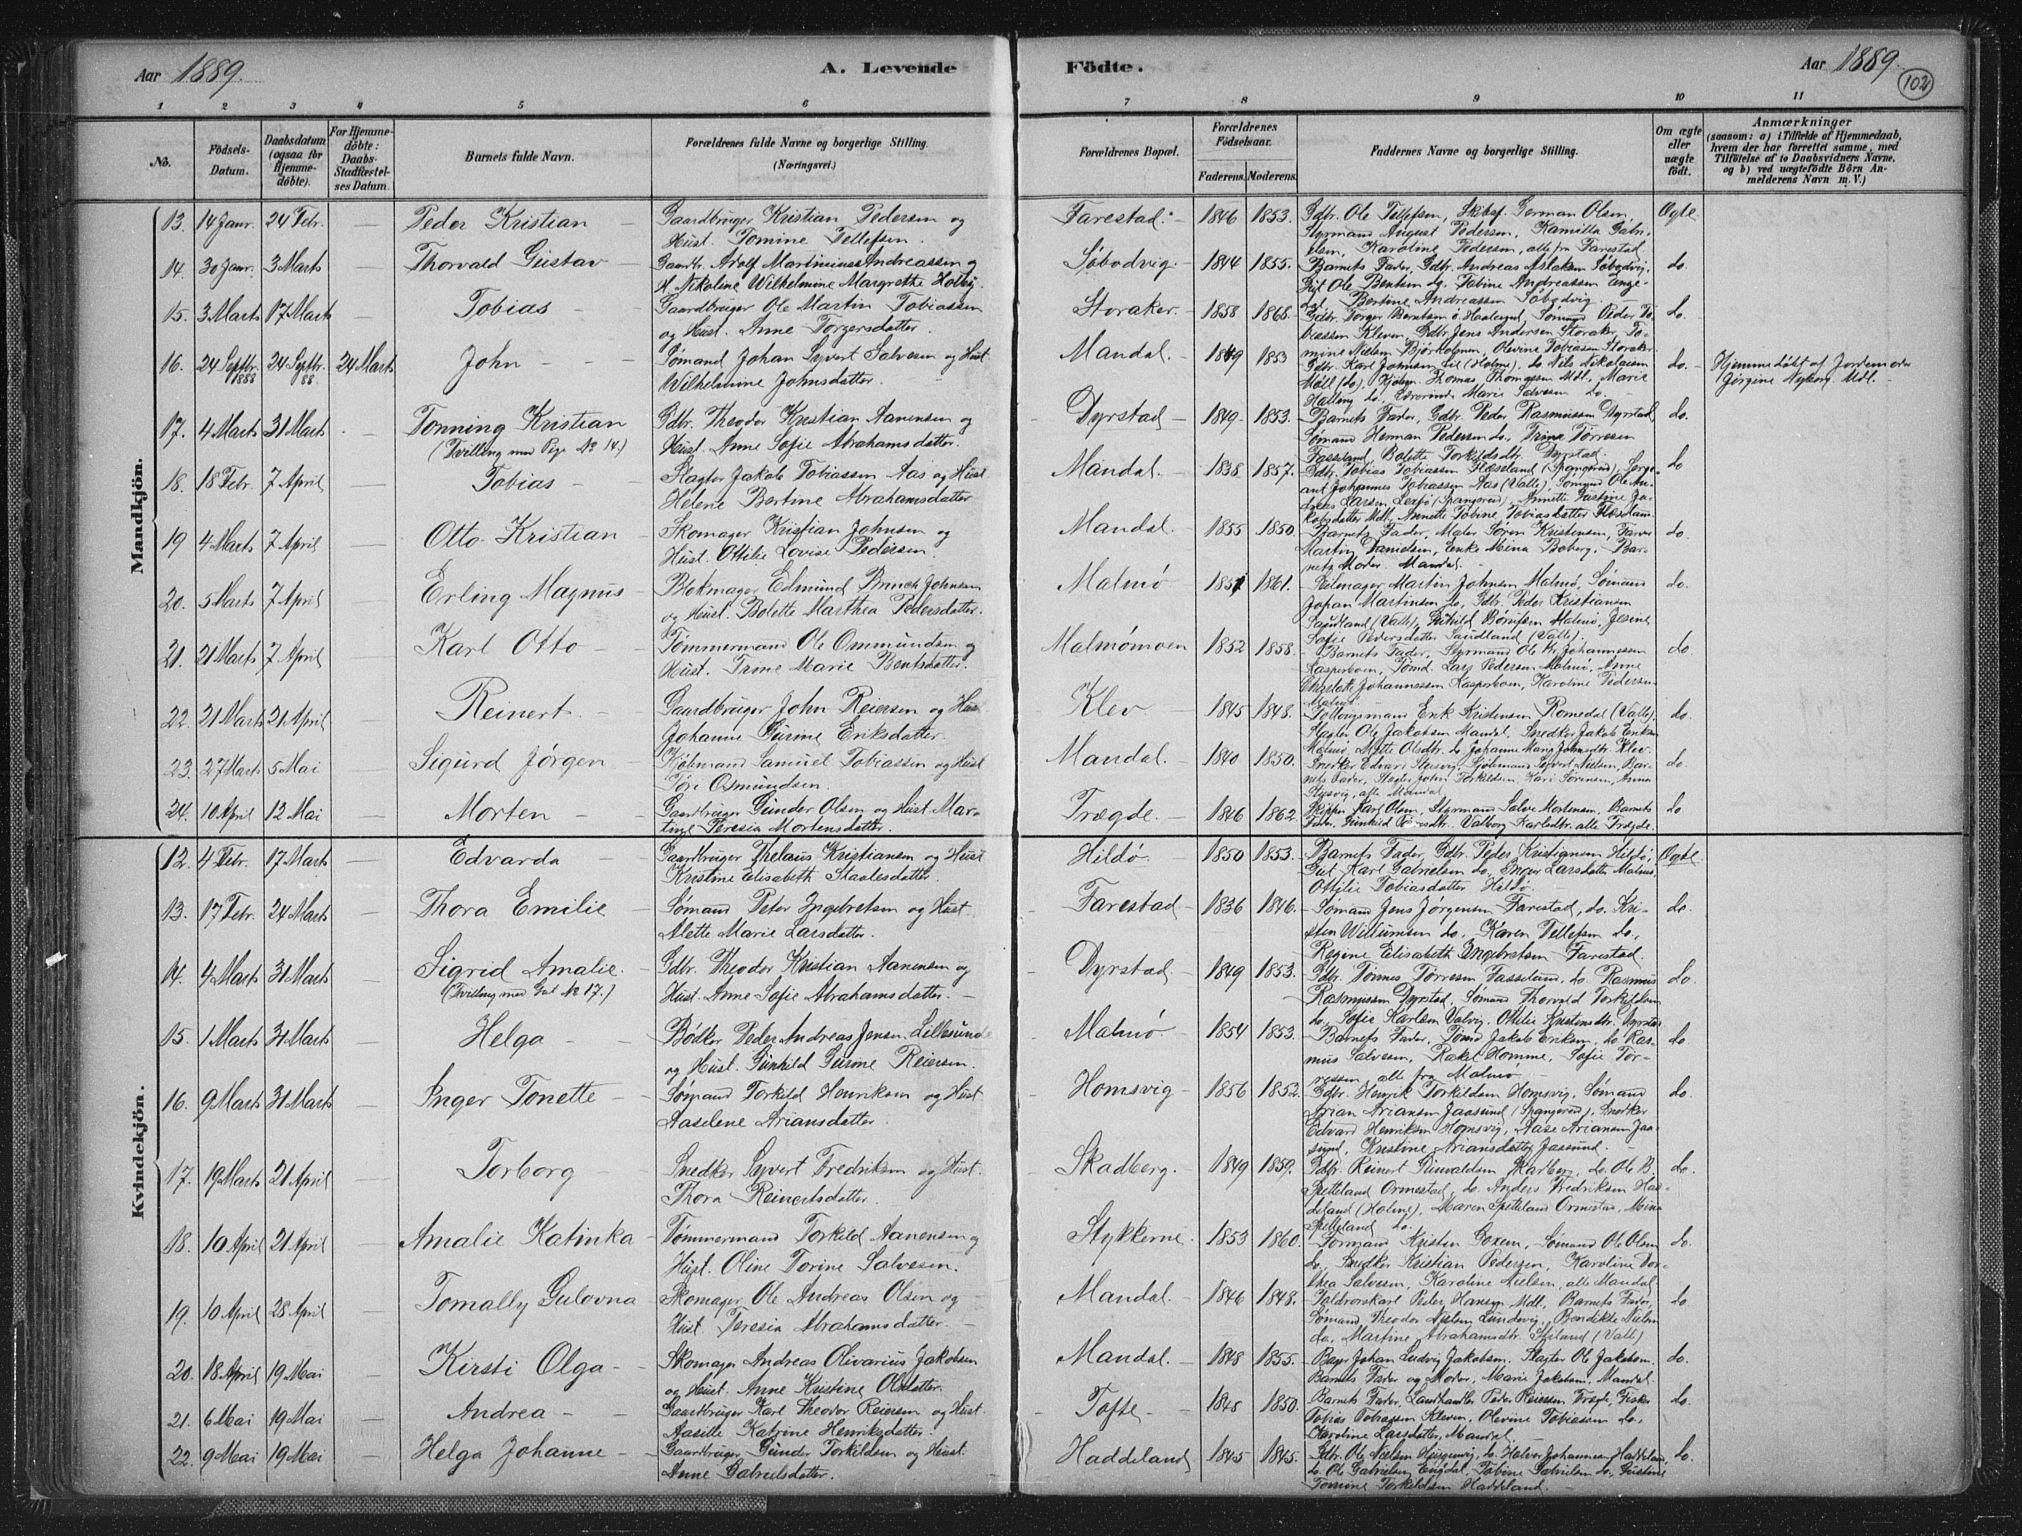 Aar 1889.
A. Levende Födte.
Aar 1889.
102
1 2 3 4 5 6 7 8 9 10 11
Nô.
Födsels-Datum.
Daabsdatum (ogsaa för Hjemmedöbte).
For Hjemmedöbte: Daabs-Stadfæstelses Datum.
Barnets fulde Navn.
Forældrenes fulde Navne og borgerlige Stilling. (Næringsvei.)
Forældrenes Bopæl.
Forældrenes Födselsaar.
Faderens. Moderens.
Faddernes Navne og borgerlige Stilling.
Om ægte eller uægte födt.
Anmærkninger
(saasom: a) i Tilfælde af Hjemmedaab, hvem der har forrettet samme, med Tilföielse af to Daabsvidners Navne, og b) ved uægtefödte Börn Anmelderens Navn m. V.)
Mandkjön.
13. 14 Janr. 24 Febr. — Peder Kristian — Gaardbruger Kristian Pedersen og Hust. Tomine Tellefsen. Farestad. 1846 1853. Gdbr. Ole Tellefsen, Skibsf. German Olsen, Styrmand August Pedersen, Kamilla Gabrielsen, Karoline Pedersen, alle fra Farestad. Ægte
14. 30 Janr. 3 Marts — Thorvald Gustav — Gaardbr. Adolf Martinius Andreassen og H. Nikoline Wilhelmine Margrethe Søbodvig. 1844 1855. Barnets Fader, Gdbr. Andreas Aslaksen Søbodvig, Gift Ole Bentsen do, Tobine Andreassen Bertine Andreassen Søbodvig. do.
15. 3 Marts 17 Marts — Tobias — Gaardbruger Ole Martin Tobiassen og Hust. Anne Torgersdatter. Storaker. 1858 1868. Gdbr. Torger Berntsen Sømand Peder Tobiassen Kleven, Gdbr. Jens Andersen Storaker, Tomine Nielsen Bjørkølmen, Olevine Tobiassen Storaker. do.
16. 24 Septbr. 1888 24 Septbr. 88. 24 Marts John — Sømand Johan Syvert Salvesen og Hust. Wilhelmine Johnsdatter. Mandal. 1849 1853 Gdbr. Karl Johnsen (Holme), do Nils Nikolaisen Møll (do), Kjøbm. Thomas Thomassen Mdl, Marie do, Marie Salvesen do. do. Hjemmedøbt af Jordemoder Gørgine Nyborg Mdl.
17. 4 Marts 31 Marts — Tønning Kristian (Tvilling med Pige No 14.) Gdbr. Theodor Kristian Aanensen og Hust. Anne Sofie Abrahamsdatter. Dyrstad 1849. 1853. Barnets Fader, Gdbr. Peder Rasmussen Dyrstad, Sømand Herman Pedersen do, Trine Tørresen Fasseland, Bolette Torkildsdtr. Dyrstad. do.
18. 18 Febr. 7 April — Tobias — Slagter Jakob Tobiassen Aas og Hust Helene Bertine Abrahamsdatter. Mandal. 1838 1857. Gdbr. Tobias Tobiassen (Spangereid), Sergeant Johannes Tobiassen Aas (Valle), Sømand Ole Andreas Larsen (Spangereid), Annette Justine Jakobsdatter Mdl, Annette Tobine Tobiasdatter do
19 4 Marts 7 April — Otto Kristian — Skomager Kristian Johnsen og Hust. Ottilie Lovise Pedersen. Mandal. 1855 1850. Barnets Fader, Maler Søren Kristensen, Martin Danielsen, Enke Mina Boberg, Barnets Moder. Mandal. do.
20. 5 Marts 7 April — Erling Magnus — Blokmager Edmund Brinch Johnsen og Hust. Bolette Marthea Pedersdatter. Malmø 1851 1861. Seilmager Martin Johnsen Malmø, Sømand Johan Martinsen do, Gdbr. Peder Kristiansen Sandland (Valle), Børufsen Malmø, Jesine Sofie Pedersdatter Sandland (Valle). do.
21. 21 Marts 7 April — Karl Otto — Tømmermand Ole Ommundsen og Hust. Trine Marie Bentsdatter. Malmømoen 1852 1858. Barnets Fader, Styrmand Ole Kr. Johannessen Kasperboen, Tømd. Lars Pedersen Malmø, Anne Charlotte Johannessen Kasperboen, Karoline Pedersen Malmø. do.
22. 21 Marts 21 April — Reinert — Gaardbruger John Reiersen og Hust Johanne Gurine Eriksdatter. Klev 1845 1848. Erik Kristensen Romedal (Valle), Slagter Ole Jakobsen Mandal, Snedker Jakob Eriksen Malmø, Mette Olsdtr. do, Johanne Marg. Johnsdtr. Klev. do.
23. 27 Marts 5 Mai — Sigurd Jørgen — Kjøbmand Samuel Tobiassen og Hust Tora Osmundsen. Mandal. 1840 1850. Snedker Edvard Kjøbmand Syvert Nielsen, Barnets Fader, Slagter John Torkildsen, Kari Sørensen, Anna alle Mandal. do.
24. 10 April 12 Mai — Morten — Gaardbruger Gunder Olsen og Hust. Martine Teresia Mortensdatter. Trægde. 1846 1862 Skipper Karl Olsen, Styrmand Salve Mortensen, Barnets Fader, Gunhild Valborg Karlsdtr. alle Trægde. do
Kvindekjön.
12. 4 Febr. 17 Marts — Edvarda — Gaardbruger Thelaus Kristiansen og Hust Kristine Elisabeth Staalesdatter. Hildø. 1850 1853. Barnets Fader, Gdbr. Peder Kristiansen Hildø, Gut Karl Gabrielsen do, Inger Larsdatter Malmø, Ottilie Tobiasdatter Hildø. Ægte
13. 17 Febr. 24 Marts — Thora Emilie — Sømand Peter Ingebretsen og Hust. Alette Marie Larsdatter. Farestad 1836 1846. Sømand Jens Jørgensen Farestad, do. Kristen Willumsen do, Karen Tellefsen do, Regine Elisabeth Ingebretsen Farestad. do.
14. 4 Marts 31 Marts — Sigrid Amalie. (Tvilling med Gut No 17.) Gdbr. Theodor Kristian Aanensen og Hust. Anne Sofie Abrahamsdatter. Dyrstad 1849 1853. Gdbr. Tønnes Tørresen Fasseland, do. Rasmus Rasmussen Dyrstad, Sømand Thorvald Torkildsen do, Sofie Karlsen Valvig, Ottilie Kristensdtr. Dyrstad do.
15. 1 Marts 31 Marts — Helga — Bødker Peder Andreas Jensen Lillesund og Hust. Gunhild Gurine Reiersen. Malmø 1854 1853. Barnets Fader, Tømd. Jakob Eriksen, do Rasmus Salvesen, Rakel Homme, Sofie Tørressen alle fra Malmø. do
16. 9 Marts 31 Marts — Inger Tonette — Sømand Torkild Henriksen og Hust Aaselene Ariansdatter. Homsvig 1856 1852. Gdbr. Henrik Torkildsen Homsvig, Sømand Arian Ariansen Jaasund (Spangereid), Snedker Edvard Henriksen Homsvig, Aase Ariansen Jaasund, Kristine Ariansdatter Jaasund. do.
17. 19 Marts 21 April — Torborg — Snedker Syvert Fredriksen og Hust. Thora Reinertsdatter. Skadberg. 1849 1859. Gdbr. Reinert Skadberg, do. Ole B. Spetteland Ormestad, do Anders Fredriksen Haddeland (Holme), Maren Spetteland Ormestad, Mina Spetteland do. do.
18. 10 April 21 April — Amalie Katinka — Tømmermand Torkild Aanensen og Hust. Oline Torine Salvesen. Stykkerne. 1853 1860. Sømand Kristen Sømand Ole Olsen do, Snedker Kristian Pedersen, Karoline Dorthea Salvesen, Karoline Nielsen, alle Mandal. do.
19. 10 April 28 April — Tomally Gulovna Skomager Ole Andreas Olsen og Hust. Teresia Abrahamsdatter. Mandal. 1846 1848. Peder Hansen Mdl, Barnets Fader, Sømand Theodor Nielsen Lundevig, Bendikte Nielsen do, Martine Abrahamsdtr. (Valle) do
20. 18 April 19 Mai — Kirsti Olga — Skomager Andreas Olivarius Jakobsen og Hust. Anne Kristine Olsdatter. Mandal. 1848 1855. Johan Ludvig Jakobsen, Slagter Ole Jakobsen, Barnets Fader og Moder, Marie Jakobsen, Mandal. do.
21. 6 Mai 19 Mai — Andrea — Gaardbruger Karl Theodor Reiersen og Hust. Aasille Katrine Henriksdatter. Tofte. 1848 1850. Barnets Fader, Landhandler Peder Reiersen Trægde, Fisker Tobias Tobiassen Kleven, Olevine Tobiassen do, Karoline Larsdatter, Mandal. do.
22. 9 Mai 19 Mai — Helga Johanne — Gaardbruger Gunder Torkildsen og Hust. Anne Gabrielsdatter. Haddeland 1845 1845. Gdbr. Ole Nielsen do. Halvor Johannesen Haddeland, do Ole Gabrielsen Engdal, Tobine Gabrielsen do, Gustine Tomine Torkildsen Haddeland. do.